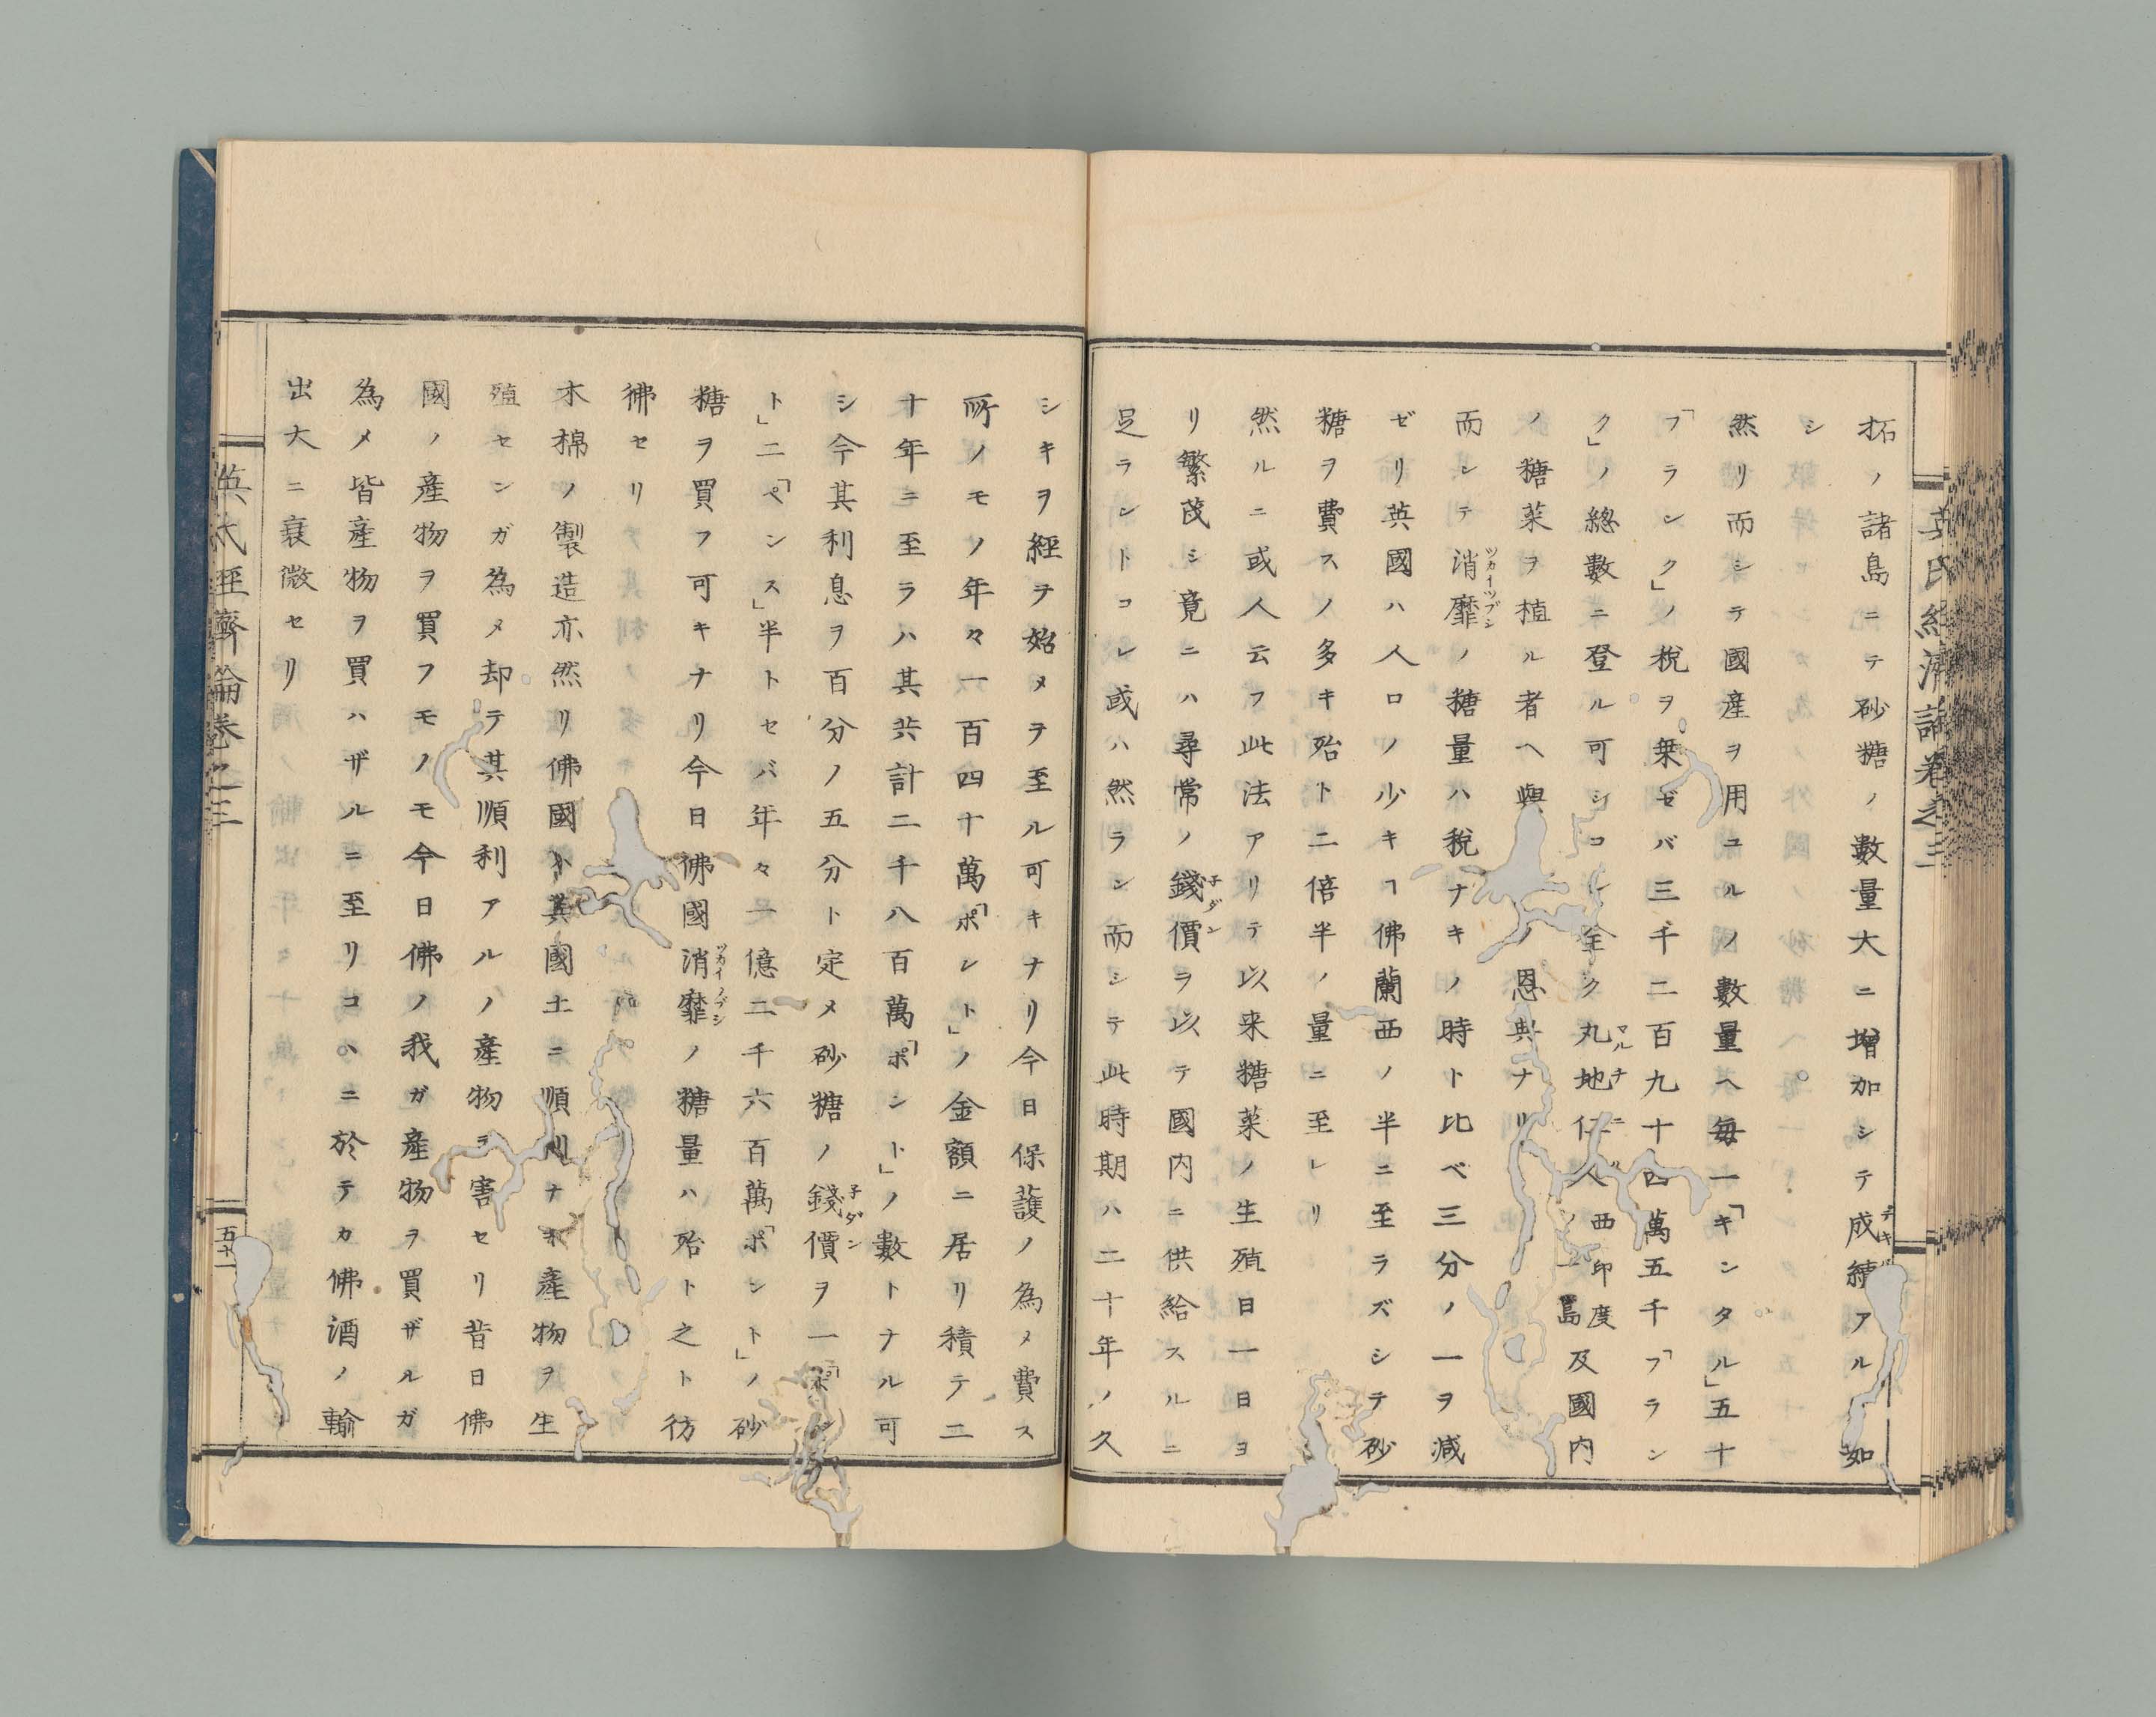 拓ノ諸島ニテ砂糖ノ數量大ニ増加シテ成績アル如
シ
然リ而シテ國産ヲ用ユルノ數量ヘ毎一「キンタル」五十
「フランク」ノ稅ヲ乗ゼバ三千二百九十四萬五千「フラン
ク」ノ總數ニ登ル可シコレ全ク丸地仁人西印度一島及國内
ノ糖菜ヲ植ル者ヘ與ノ恩典ナリ
而シテ消靡ノ糖量ハ稅ナキノ時ト比ベ三分ノ一ヲ減
ゼリ英國ハ人口ノ少キヿ佛蘭西ノ半ニ至ラズシテ砂
糖ヲ費スノ多キ殆ト二倍半ノ量ニ至レリ
然ルニ或人云フ此法アリテ以来糖菜ノ生殖日一日ヨ
リ繁茂シ竟ニハ尋常ノ錢價ヲ以テ國内ニ供給スルニ
足ラントコレ或ハ然ラン而シテ此時期ハ二十年ノ久
シキヲ經テ始メテ至ル可キナリ今日保護ノ為メ費ス
所ノモノ年々一百四十萬「ポント」ノ金額ニ居リ積テ二
十年ニ至ラハ其共計二千八百萬「ポント」ノ數トナル可
シ今其利息ヲ百分ノ五分ト定メ砂糖ノ錢價ヲ一「ポン
ト」二「ペンス」半トセバ年々一億二千六百萬「ポント」ノ砂
糖ヲ買フ可キナリ今日佛國消靡ノ糖量ハ殆ト之ト彷
彿セリ
木棉ノ製造亦然リ佛國ハ其國土ニ順利ナキ産物ヲ生
殖センガ為メ却テ其順利アルノ産物ヲ害セリ昔日佛
國ノ産物ヲ買フモノモ今日佛ノ我ガ産物ヲ買ザルガ
為メ皆産物ヲ買ハザルニ至リコヽニ於テカ佛酒ノ輸
出大ニ衰微セリ
英氏經濟論卷之三
五十一